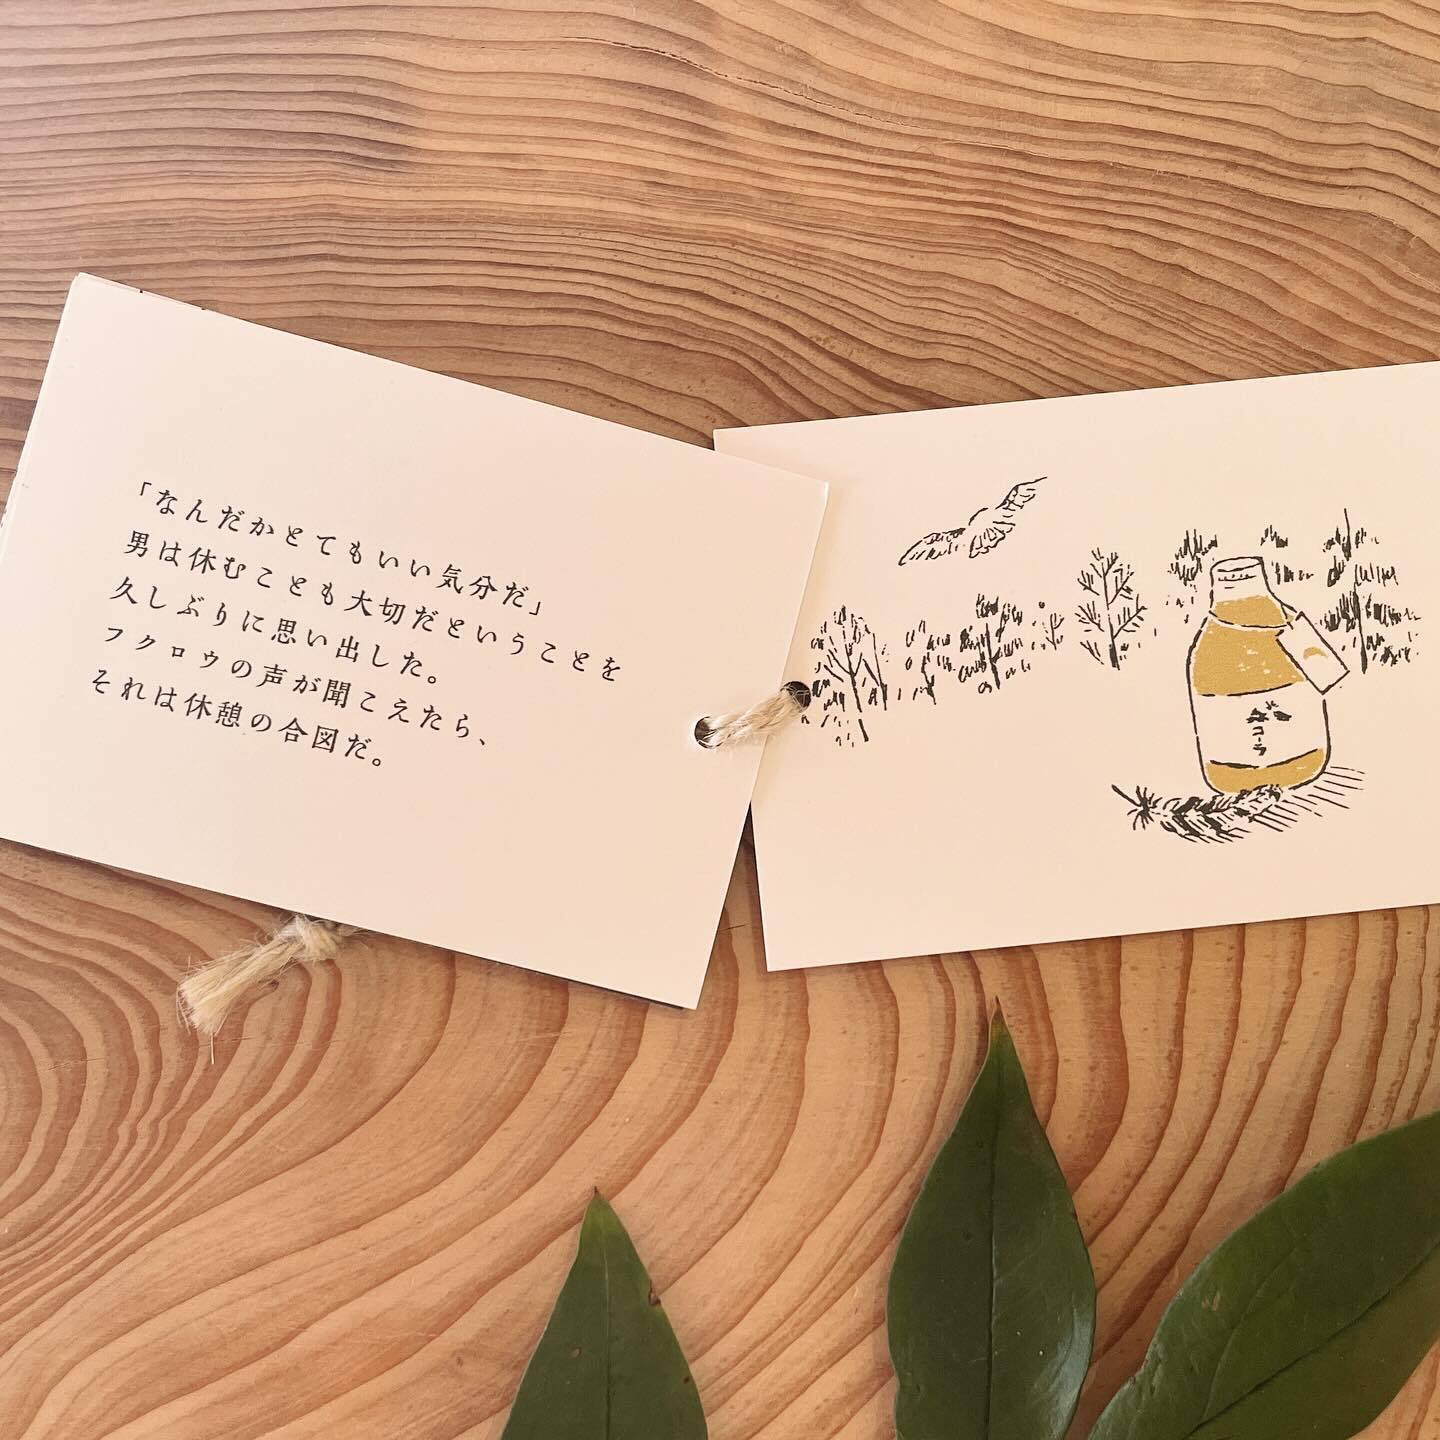 「なんだかとてもいい気分だ」
男は休むことも大切だということを
久しぶりに思い出した。
フクロウの声が聞こえたら、
それは休憩の合図だ。
コーラ